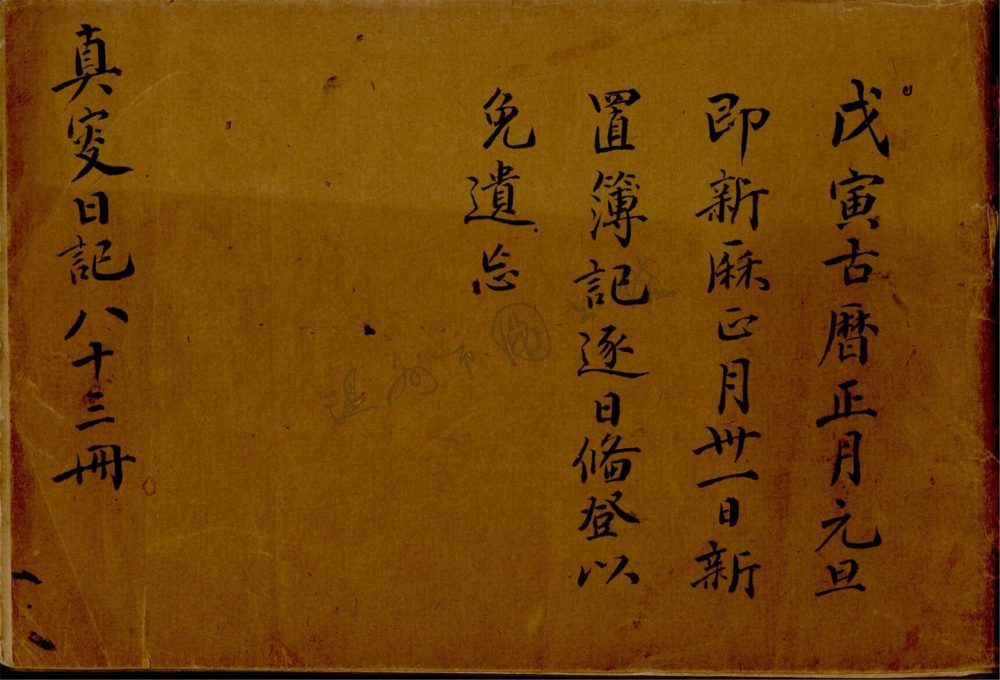 戊寅古曆正月元旦
即新厤正月卅一日新
置簿記逐日偹登以
免遺忘
真叜日記八十三冊
温州市图